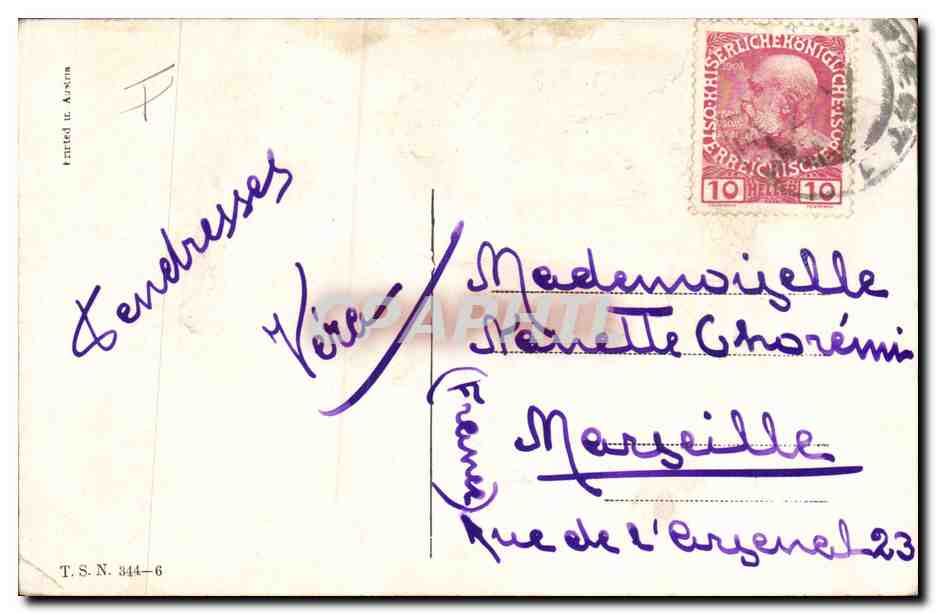 Printed in Austria
Tendresses
Véra
Mademoiselle
Nanette Chorémi
Marseille
(France)
Rue de l'Arsenal 23
T. S. N. 344-6
1908
KAISERLICHE KÖNIGLICHE
ÖSTERREICHISCHE
10 HELLER 10
CPAPHIL